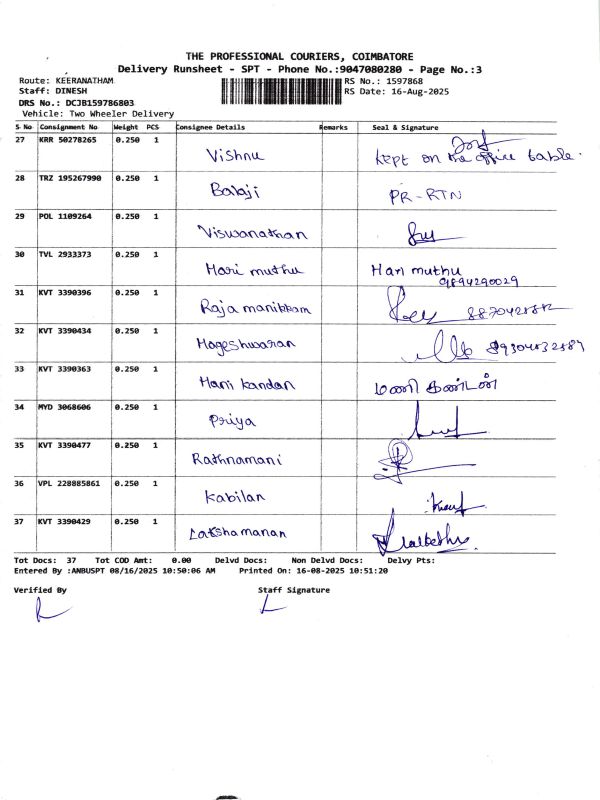 THE PROFESSIONAL COURIERS, COIMBATORE
Delivery Runsheet - SPT - Phone No.:9047080280 - Page No.:3
Route: KEERANATHAM RS No.: 1597868
Staff: DINESH RS Date: 16-Aug-2025
DRS No.: DCJB159786803
Vehicle: Two Wheeler Delivery
S No Consignment No Weight PCS Consignee Details Remarks Seal & Signature
27 KRR 50278265 0.250 1 Vishnu kept on the office table.
28 TRZ 195267990 0.250 1 Balaji PR-RTN
29 POL 1109264 0.250 1 Viswanathan
30 TVL 2933373 0.250 1 Hari muthu Hari muthu
9894290029
31 KVT 3390396 0.250 1 Raja manikkam
32 KVT 3390434 0.250 1 Mageshwaran
33 KVT 3390363 0.250 1 Mani kandan மணி கண்டன்
34 MYD 3068606 0.250 1 Priya
35 KVT 3390477 0.250 1 Rathnamani
36 VPL 228885861 0.250 1 Kabilan
37 KVT 3390429 0.250 1 Latshamanan
Tot Docs: 37 Tot COD Amt: 0.00 Delvd Docs: Non Delvd Docs: Delvy Pts:
Entered By :ANBUSPT 08/16/2025 10:50:06 AM Printed On: 16-08-2025 10:51:20
Verified By Staff Signature